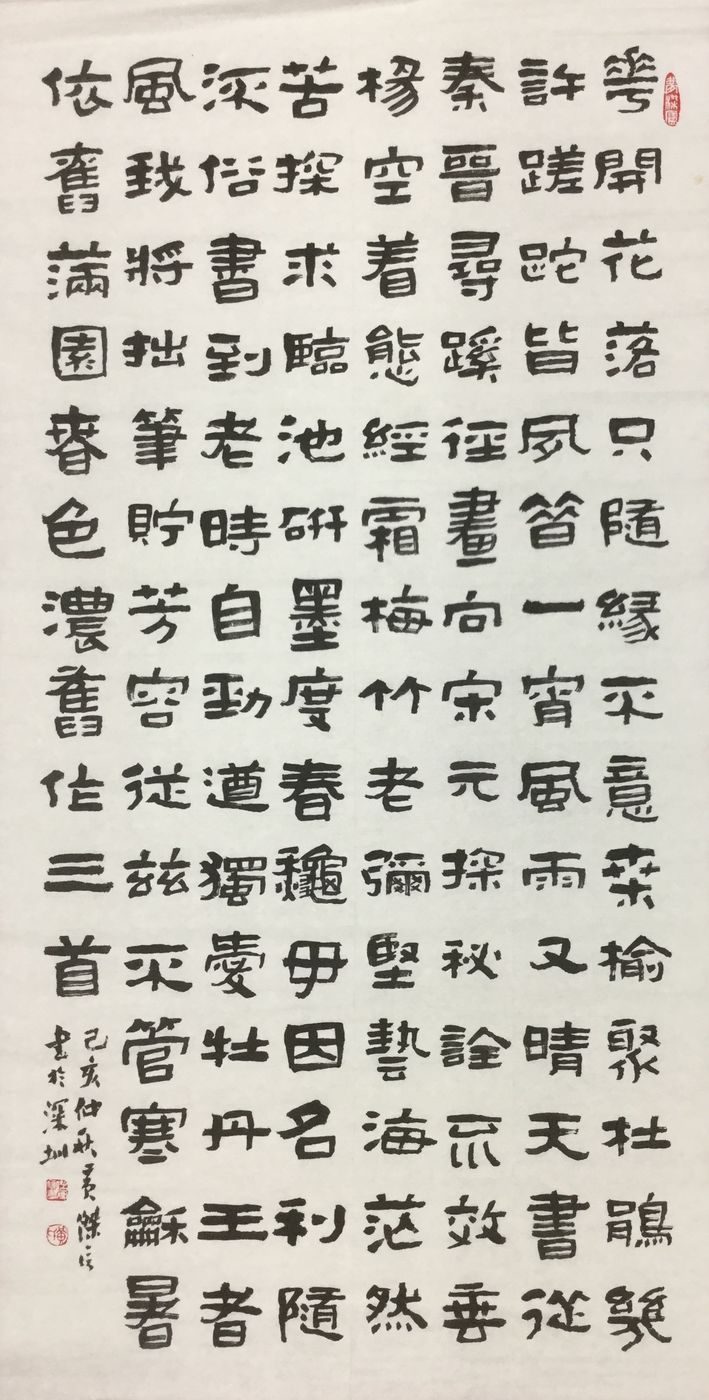 華開花落只隨緣不意桑榆聚杜鵑幾
許蹉跎皆夙昔一宵風雨又晴天書從
秦晉尋蹊徑畫向宋元探秘詮不效垂
楊空着態經霜梅竹老彌堅藝海茫然
苦探求臨池研墨度春龝毋因名利隨
流俗書到老時自勁遒獨愛牡丹王者
風我將拙筆貯芳容從茲不管寒龢暑
依舊滿園春色濃舊作三首
己亥仲秋黃傑
書於深圳